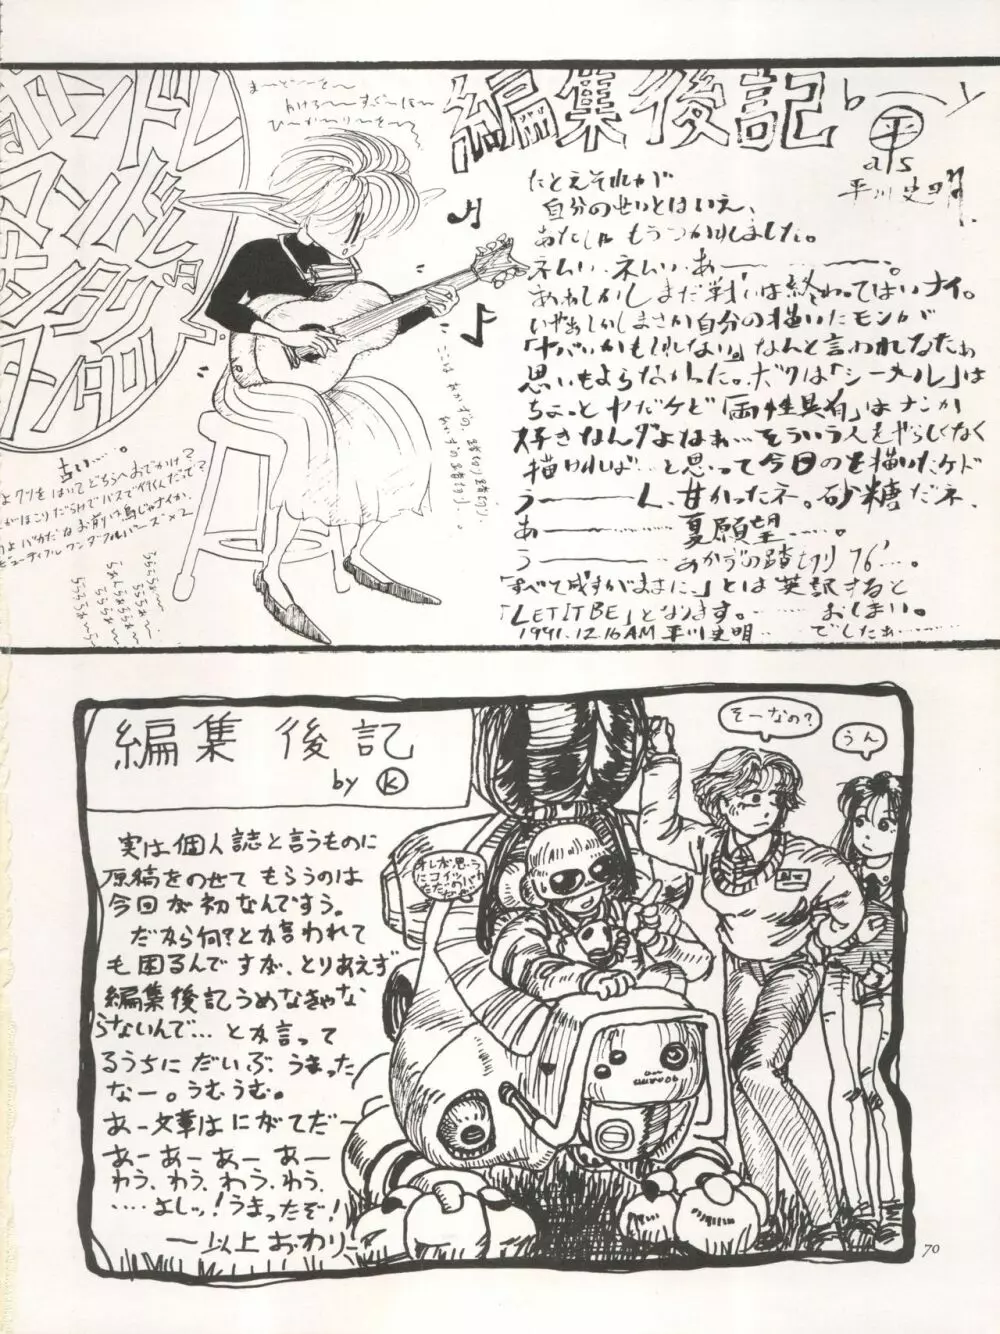 編集後記
平
als
平川史明
たとえそれが
自分のせいとはいえ、
あたしはもうつかれましました。
ネムい、ネムい、あ――――。
まだ戦いは終わってはいナイ。
まさか自分の描いたモンが
「ヤバいかもしれない。」なんて言われるたぁ
思いもよらなかった。ボクは「シーメル」は
ちょっとヤだケど「両性具有」はナンか
好きなんダよなぁ…そういう人をやらしくなく
描ければ…と思って今回のを描いたケド
う―――ん、甘かったネ。砂糖だネ、
あ―――………夏願望……。
う―――………あかずの踏切り76'…。
「すべて成すがままに、」とは英訳すると
「LET IT BE」となります。……おしまい。
1991.12.16AM 平川史明…でしたぁ………
まーどーをー
かけろー
ひーかーりーをー
♪
♪
古い……。
はいてどちらへおでかけ?
ほこりだらけでバスで行くんだって?
バカだねお前リャ鳥じゃナイか、
ビューティフルワンダフルバーズ×2
編集後記
by K
実は個人誌と言うものに
原稿をのせてもらうのは
今回が初なんですう。
だから何?とか言われて
も困るんですが、とりあえず
編集後記うめなきゃな
らないんで…とか言って
るうちにだいぶうまった
なー。うむうむ。
あー文章はにがてだー
あーあーあーあー
わう、わう、わう、わう、
‥‥よしッ!うまったぞ!
―以上おわり―
そーなの?
うん
オレが思うに
コイツは
70